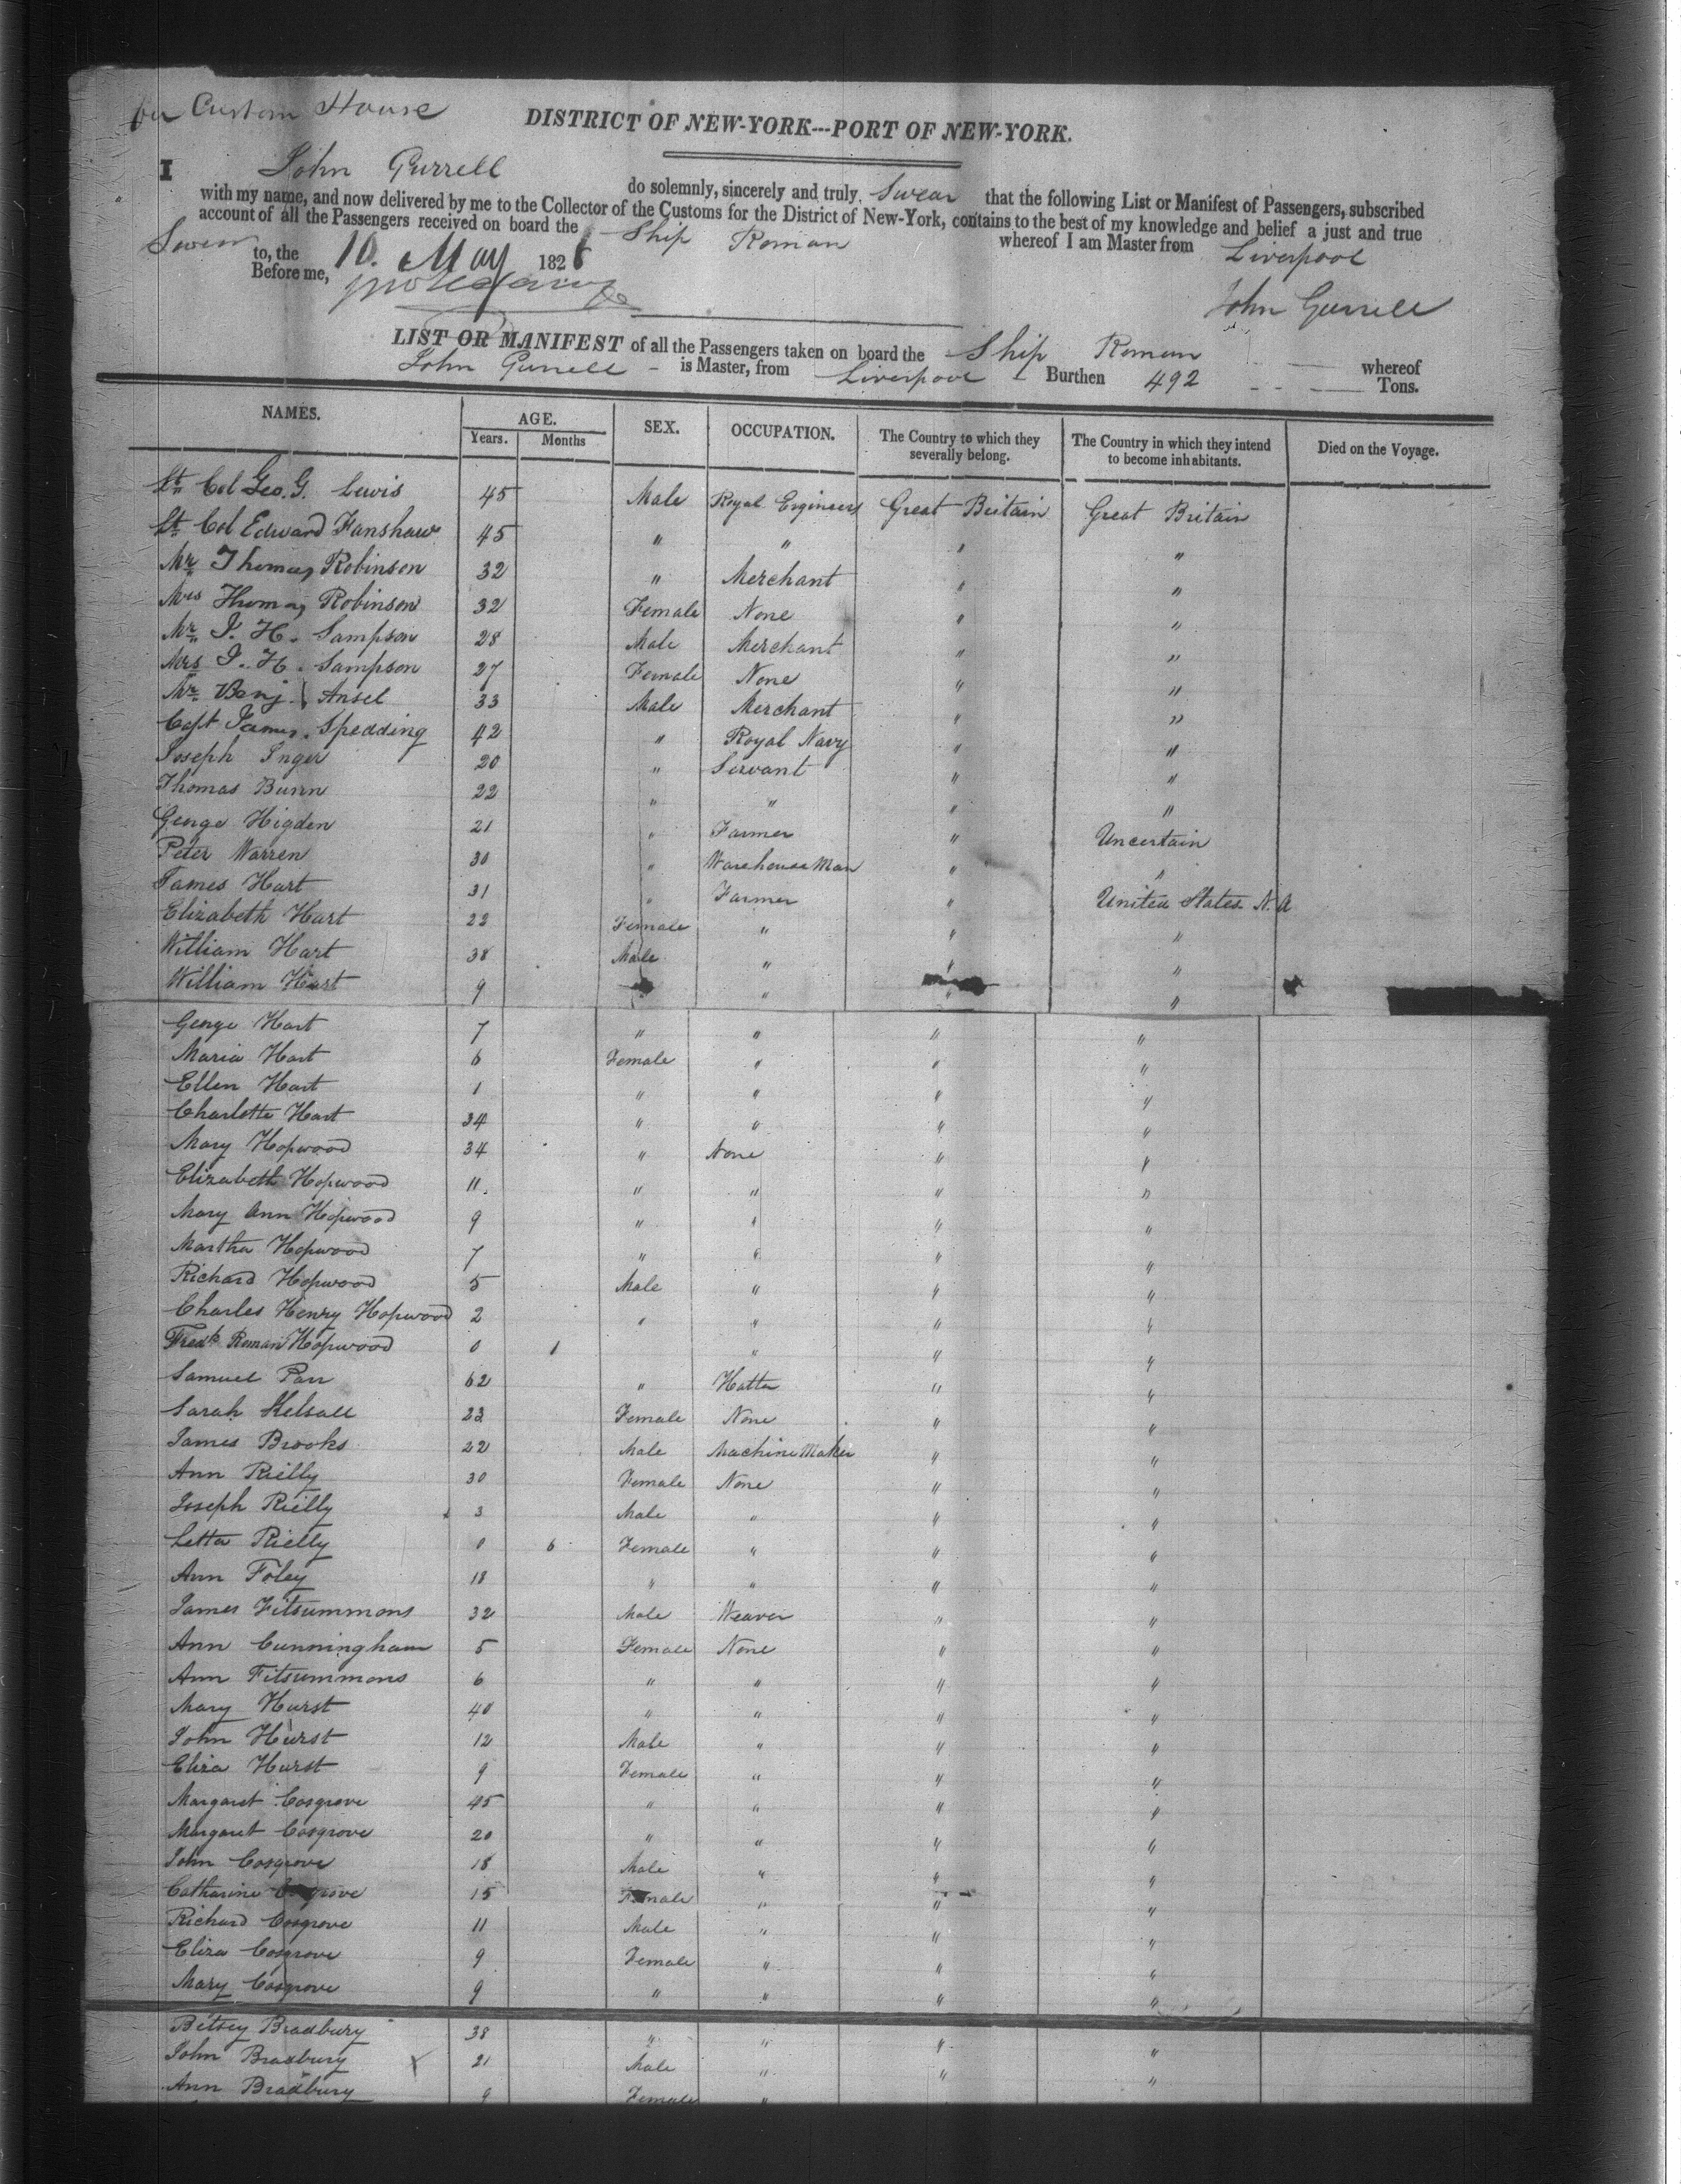 Custom House
DISTRICT OF NEW-YORK---PORT OF NEW-YORK.
I John Gurrell do solemnly, sincerely and truly, Swear that the following List or Manifest of Passengers, subscribed
with my name, and now delivered by me to the Collector of the Customs for the District of New-York, contains to the best of my knowledge and belief a just and true
account of all the Passengers received on board the Ship Roman whereof I am Master from Liverpool
Sworn to, the 10. May 1828
Before me,
John Gurrell
LIST OR MANIFEST of all the Passengers taken on board the Ship Roman whereof
John Gurrell is Master, from Liverpool Burthen 492 Tons.
NAMES. AGE. SEX. OCCUPATION. The Country to which they severally belong. The Country in which they intend to become inhabitants. Died on the Voyage.
Years. Months
Lt Col Geo. G. Lewis 45 Male Royal Engineers Great Britain Great Britain
Lt Col Edward Fanshaw 45 " " " "
Mr Thomas Robinson 32 " Merchant " "
Mrs Thomas Robinson 32 Female None " "
Mr J. H. Sampson 28 Male Merchant " "
Mrs J. H. Sampson 27 Female None " "
Mr Benj. Ansel 33 Male Merchant " "
Capt James Spedding 42 " Royal Navy " "
Joseph Inger 20 " Servant " "
Thomas Bunn 22 " " " "
George Higden 21 " Farmer " Uncertain
Peter Warren 30 " Warehouse Man " "
James Hart 31 " Farmer " United States N. A
Elizabeth Hart 22 Female " " "
William Hart 38 Male " " "
William Hart 9 " " "
George Hart 7 " " " "
Maria Hart 6 Female " " "
Ellen Hart 1 " " " "
Charlotte Hart 34 " " " "
Mary Hopwood 34 " None " "
Elizabeth Hopwood 11 " " " "
Mary Ann Hopwood 9 " " " "
Martha Hopwood 7 " " " "
Richard Hopwood 5 Male " " "
Charles Henry Hopwood 2 " " " "
Fredk Roman Hopwood 0 1 " " "
Samuel Parr 62 " Hatter " "
Sarah Kelsall 23 Female None " "
James Brooks 22 Male Machine Maker " "
Ann Rielly 30 Female None " "
Joseph Rielly 3 Male " " "
Letta Rielly 0 6 Female " " "
Ann Foley 18 " " " "
James Fitsummons 32 Male Weaver " "
Ann Cunningham 5 Female None " "
Ann Fitsummons 6 " " " "
Mary Hurst 40 " " " "
John Hurst 12 Male " " "
Eliza Hurst 9 Female " " "
Margaret Cosgrove 45 " " " "
Margaret Cosgrove 20 " " " "
John Cosgrove 18 Male " " "
Catharine Cosgrove 15 Female " " "
Richard Cosgrove 11 Male " " "
Eliza Cosgrove 9 Female " " "
Mary Cosgrove 9 " " " "
Betsey Bradbury 38 " " " "
John Bradbury X 21 Male " " "
Ann Bradbury 9 Female "